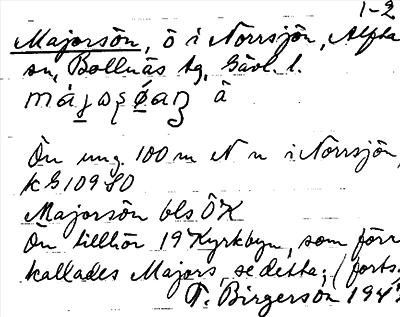 1-2
Majorsön, ö i Norrsjön, Alfta
sn, Bollnäs tg, Gävl. l.
Ön ung. 100 m N n i Norrsjön,
k G 109 SO
Majorsön bls ÖK
Ön tillhör 19 Kyrkbyn, som förr
kallades Majors, se detta; (forts.
T. Birgerson